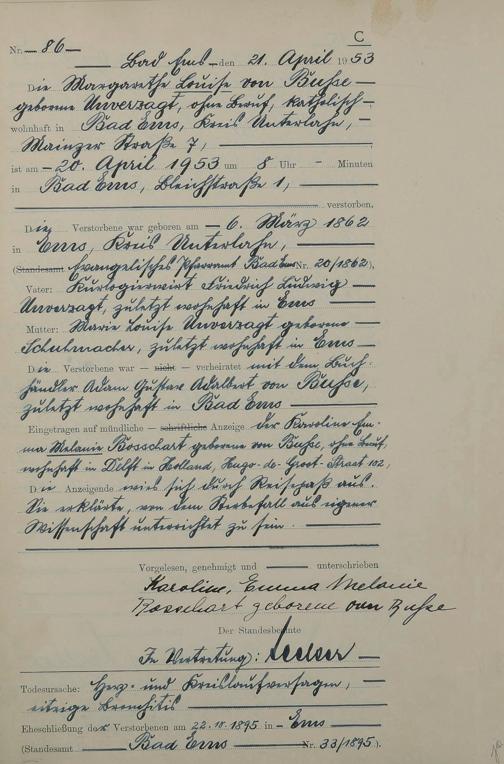 C
Nr. 86
Bad Ems den 21. April 1953
Die Margarethe Louise von Buhse
geborene Unverzagt, ohne Beruf, katholisch
wohnhaft in Bad Ems, Kreis Unterlahn,
Mainzer Straße 7,
ist am 20. April 1953 um 8 Uhr - Minuten
in Bad Ems, Bleichstraße 1,
verstorben,
Die Verstorbene war geboren am 6. März 1862
in Ems, Kreis Unterlahn,
(Standesamt Evangelisches Pfarramt Bad Ems Nr. 20/1862),
Vater: Kurlogierwirt Friedrich Ludwig
Unverzagt, zuletzt wohnhaft in Ems
Mutter: Marie Louise Unverzagt geborene
Schuhmacher, zuletzt wohnhaft in Ems
Die Verstorbene war — nicht — verheiratet mit dem Buch-
händler Adam Gustav Adalbert von Buhse,
zuletzt wohnhaft in Bad Ems
Eingetragen auf mündliche — schriftliche Anzeige der Karoline Em-
ma Melanie Bosschart geborene von Buhse, ohne Beruf,
wohnhaft in Delft in Holland, Hugo-de-Groot-Straat 102,
Die Anzeigende wies sich durch Reisepaß aus.
Sie erklärte, von dem Sterbefall aus eigener
Wissenschaft unterrichtet zu sein.
Vorgelesen, genehmigt und unterschrieben
Karoline, Emma Melanie
Bosschart geborene von Buhse
Der Standesbeamte
In Vertretung:
Todesursache: Herz- und Kreislaufversagen,
eitrige Bronchitis
Eheschließung der Verstorbenen am 22. 1895 in Ems
(Standesamt Bad Ems Nr. 33/1895).